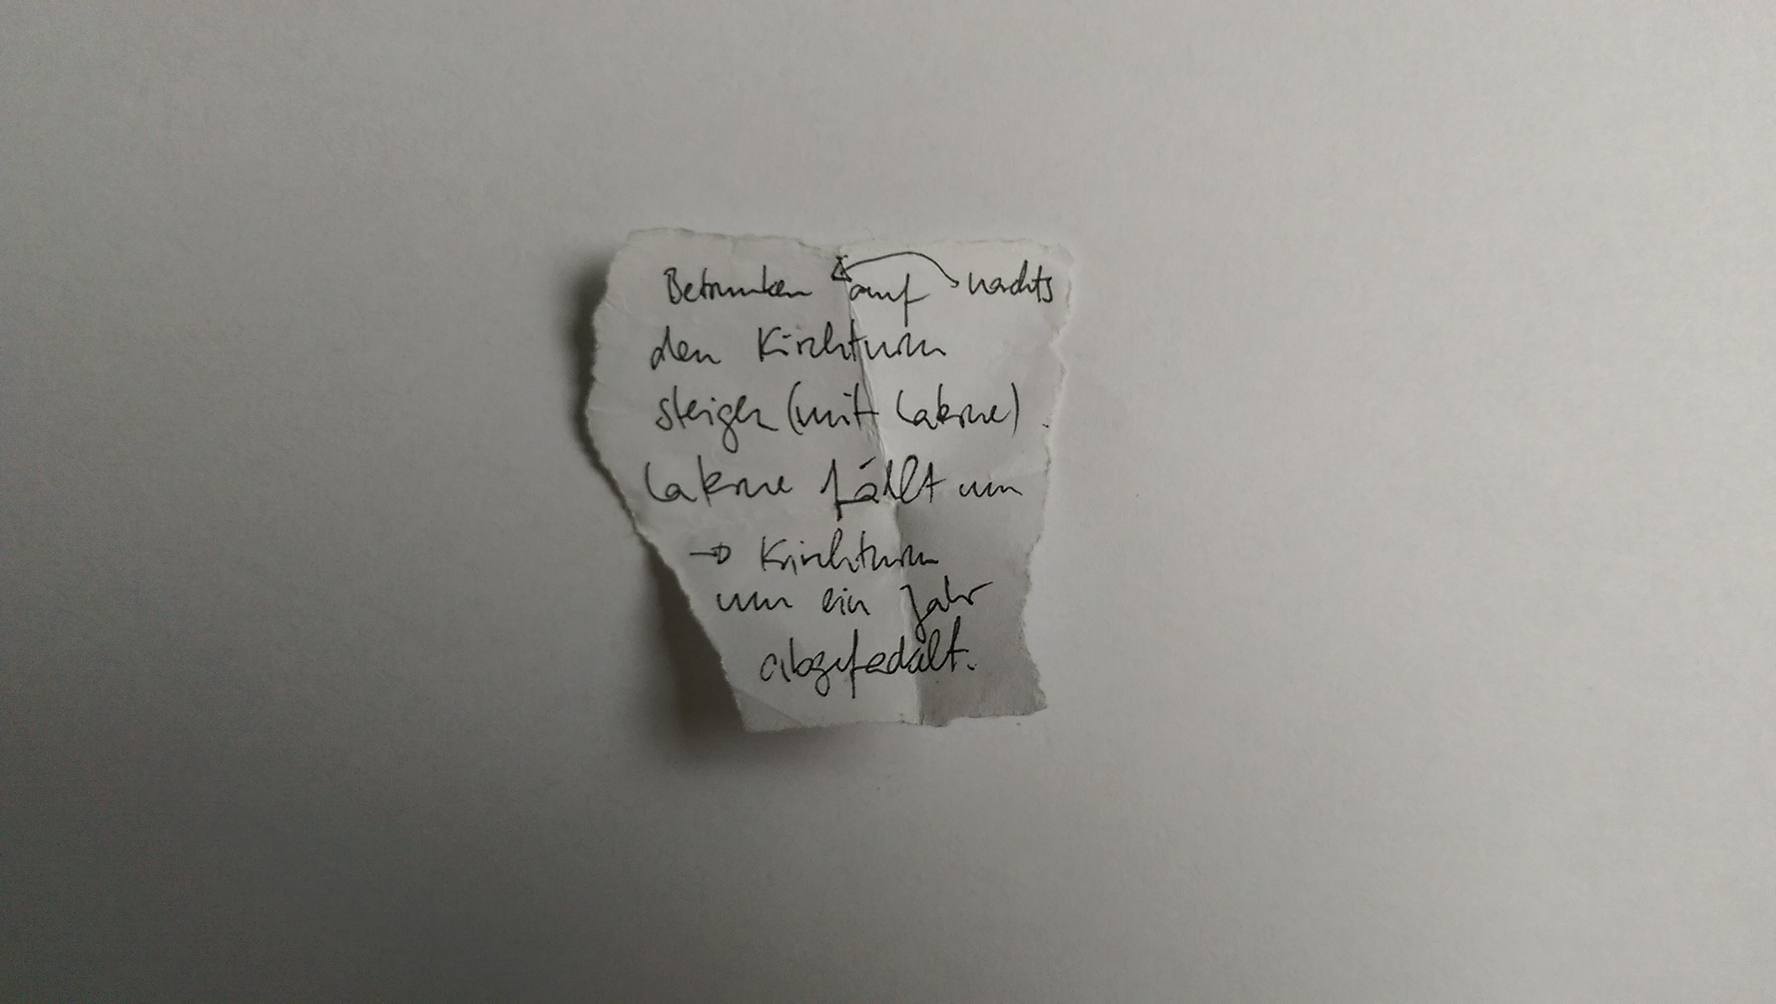 Betrunken auf nachts
den Kirchturm
steigen (mit Laterne).
Laterne fällt um
→ Kirchturm
um ein Jahr